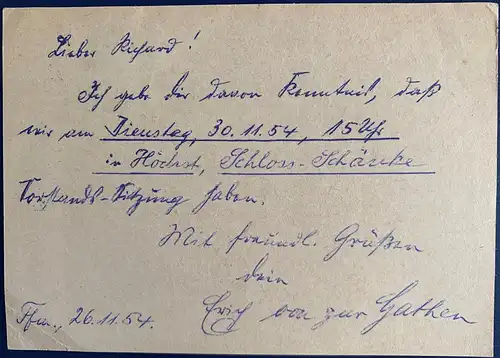 Lieber Richard!
Ich gebe Dir davon Kenntnis, daß
wir am Dienstag, 30.11.54, 15 Uhr
in Höchst, Schloss-Schänke
Vorstands-Sitzung haben.
Mit freundl. Grüßen
dein
Erich von zur Gathen
Ffm., 26.11.54.